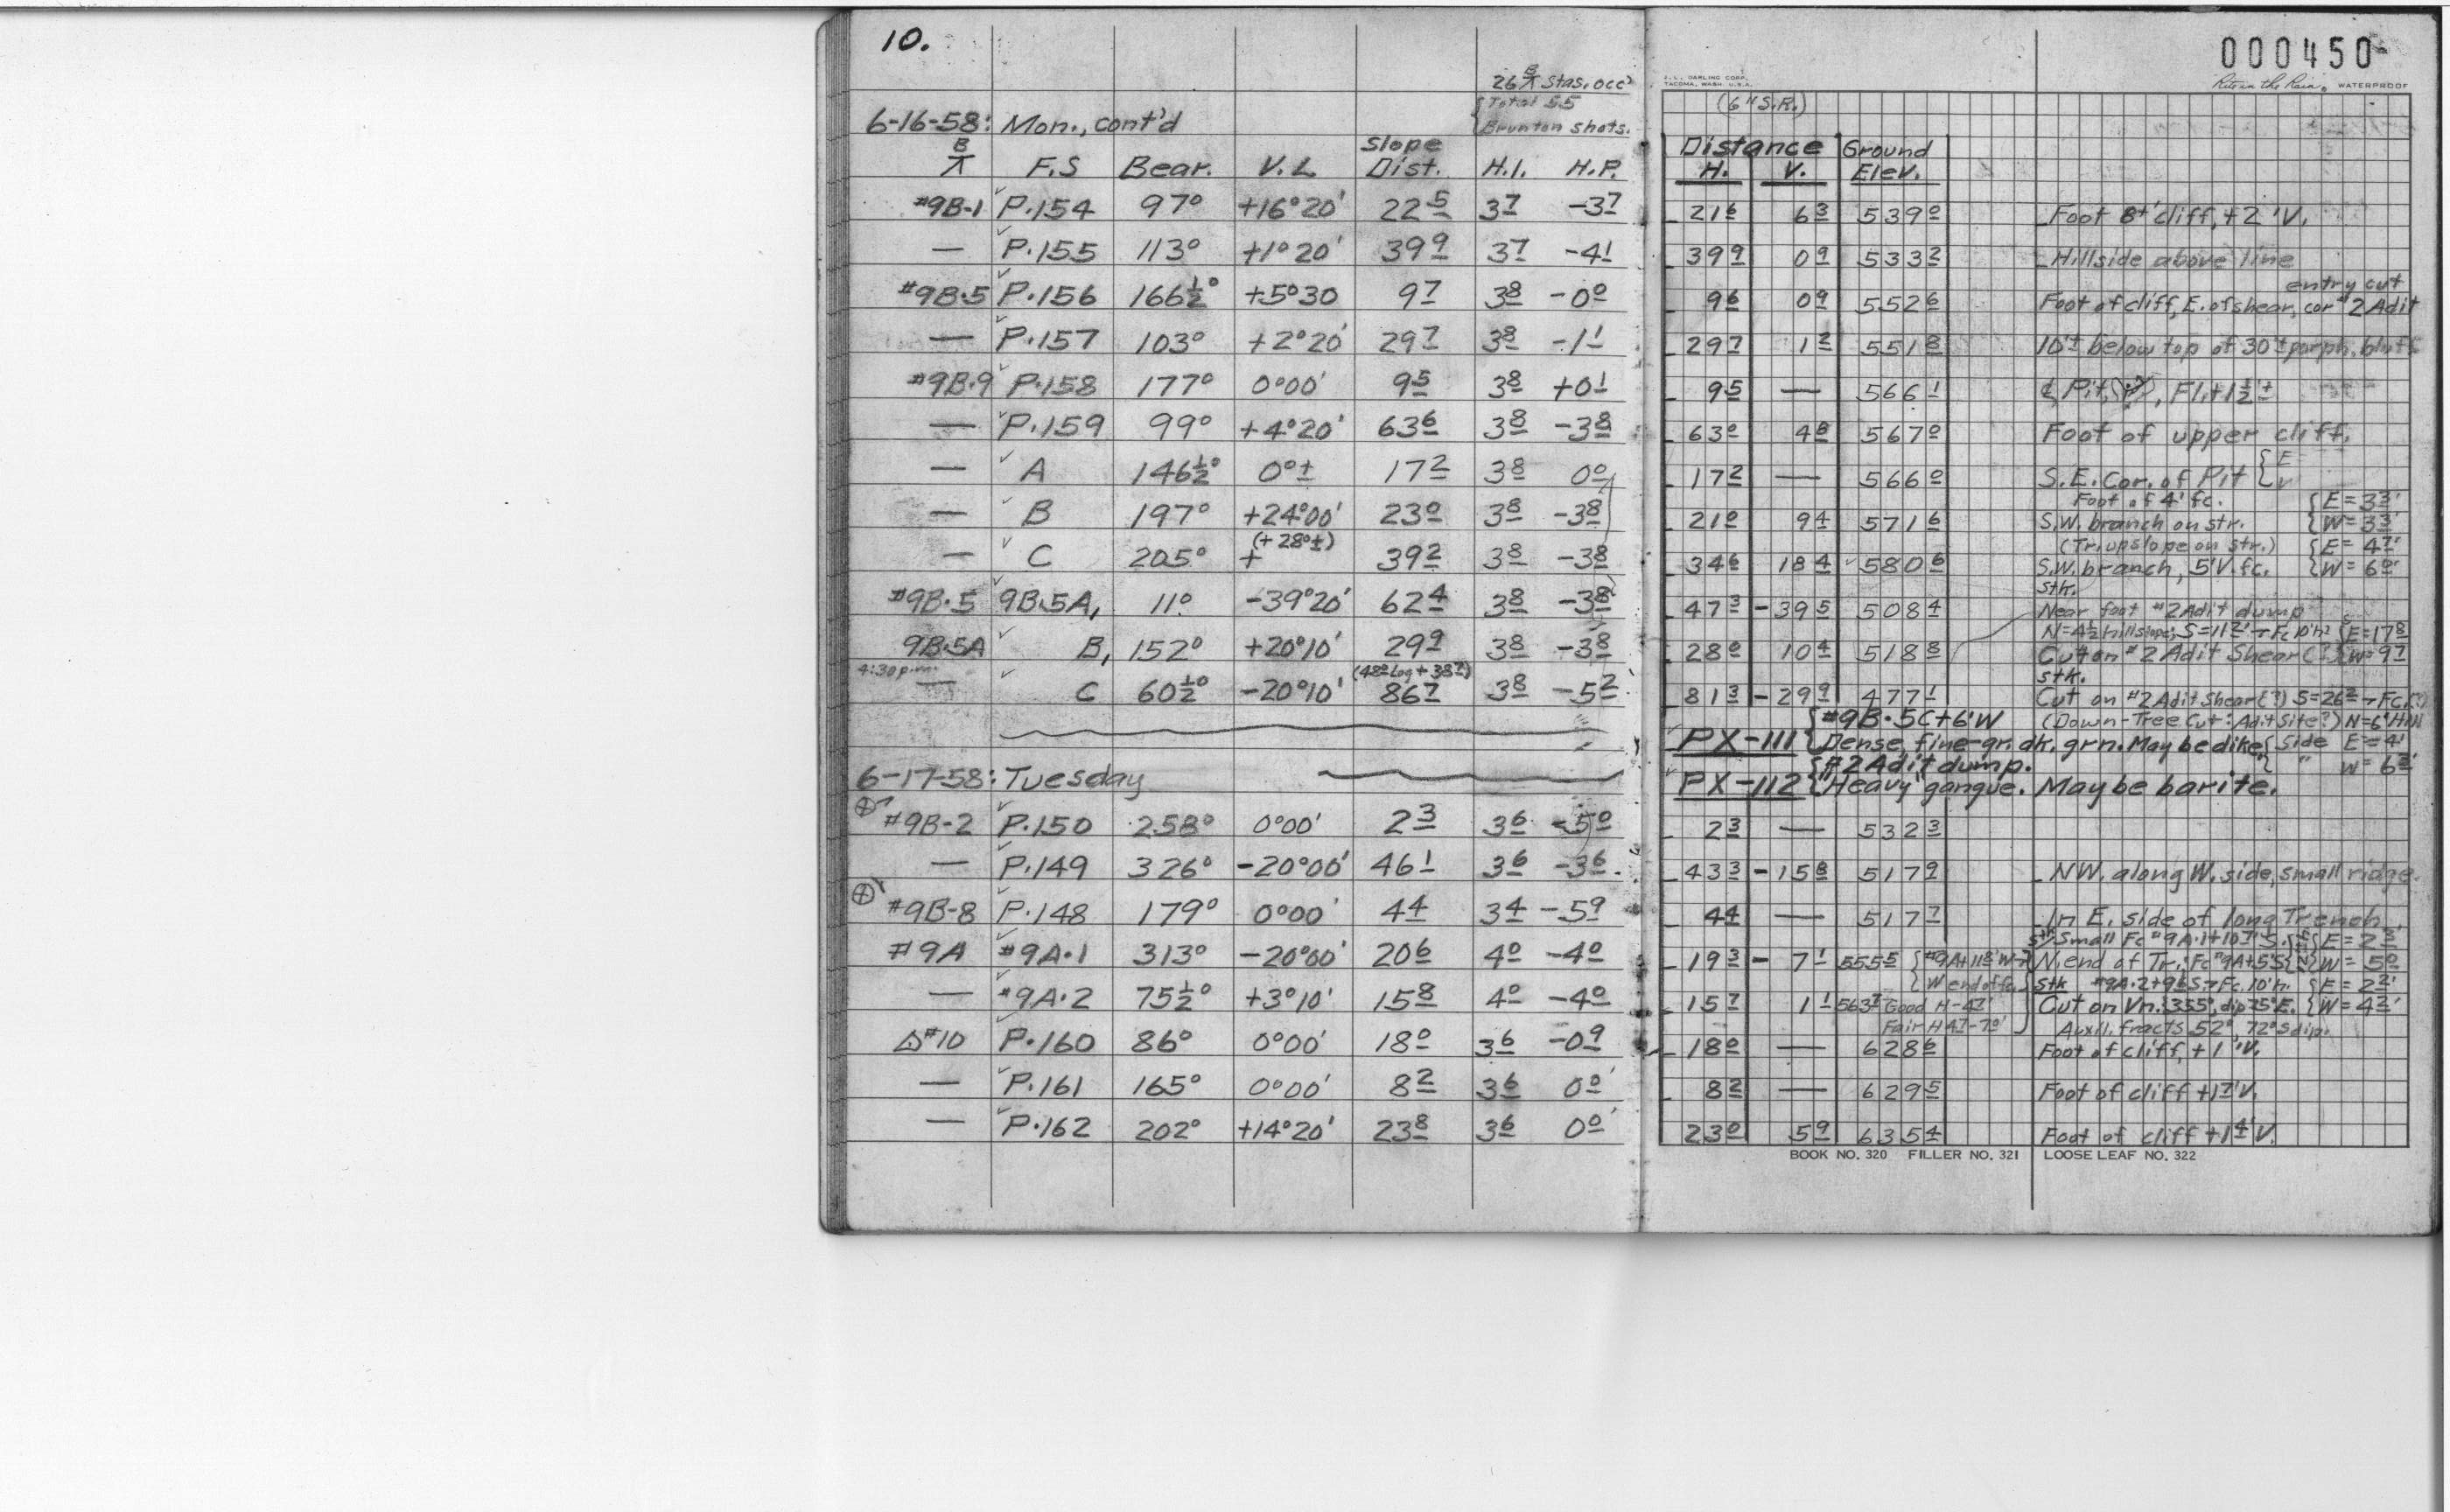 10.
000450
26 Stas. occ'
J. L. DARLING CORP.
TACOMA, WASH. U.S.A.
Rite in the Rain. WATERPROOF
{Total 55
Brunton shots.
(6" S.R.)
6-16-58: Mon., cont'd
Slope
Distance Ground
B
⊼ F.S Bear. V.L Dist. H.I. H.P. H. V. Elev.
#9B-1 P.154 97° +16°20' 22 5 3 7 -3 7 21 6 6 3 539 0 Foot 8±' cliff, +2 'V.
— P.155 113° +1°20' 39 9 3 7 -4 1 39 9 0 9 533 2 Hillside above line
entry cut
#9B.5 P.156 166½° +5°30 9 7 3 8 -0 0 9 6 0 9 552 6 Foot of cliff, E. of shear, cor #2 Adit
— P.157 103° +2°20' 29 7 3 8 -1 1 29 7 1 2 551 8 10'± below top of 30'± porph. bluff
#9B.9 P.158 177° 0°00' 9 5 3 8 +0 1 9 5 — 566 1 ℄ Pit, Fl. +1½'±
— P.159 99° +4°20' 63 6 3 8 -3 8 63 0 4 8 567 0 Foot of upper cliff.
— A 146½° 0°± 17 2 3 8 0 0 17 2 — 566 0 S.E. Cor. of Pit {E
Foot of 4' fc. {E = 3 3'
— B 197° +24°00' 23 0 3 8 -3 8 21 0 9 4 571 6 S.W. branch on str. {W = 3 3'
(+28°±) (Tr. upslope on str.) {E = 4 7'
— C 205° + 39 2 3 8 -3 8 34 6 18 4 580 6 S.W. branch, 5'V. fc. {W = 6 0'
stk.
#9B.5 9B.5A, 11° -39°20' 62 4 3 8 -3 8 47 3 -39 5 508 4 Near foot #2 Adit dump
N=4½ hillslope; S=11 2' → Fc 10'h? {E=17 8
9B.5A B, 152° +20°10' 29 9 3 8 -3 8 28 0 10 4 518 8 Cut on #2 Adit Shear(?) {W=9 7
4:30 p.m. (48 0 Log + 38 7) stk.
— C 60½° -20°10' 86 7 3 8 -5 2 81 3 -29 9 477 1 Cut on #2 Adit Shear(?) S=26 2 → Fc.(?)
{#9B.5C+6'W (Down-Tree Cut: Adit Site?) N=6'Hill
PX-111 {Dense, fine-gr. dk. grn. May be dike {Side E=4'
{#2 Adit dump. " W=6 3'
6-17-58: Tuesday
PX-112 {"Heavy" gangue. May be barite.
#9B-2 P.150 258° 0°00' 2 3 3 6 -5 0 2 3 — 532 3
— P.149 326° -20°00' 46 1 3 6 -3 6 43 3 -15 8 517 9 NW. along W. side, small ridge.
#9B-8 P.148 179° 0°00' 4 4 3 4 -5 9 4 4 — 517 7 In E. side of long Trench
stk Small Fc #9A.1+10 7' S. {E=2 3'
#9A #9A.1 313° -20°00' 20 6 4 0 -4 0 19 3 - 7 1 555 5 {#9A+11 8'W→ N. end of Tr.; Fc #9A+5'S {W= 5 0
{W end of fc. stk #9A.2+9 6 S.→ Fc. 10'h. {E=2 2'
— #9A.2 75½° +3°10' 15 8 4 0 -4 0 15 7 1 1 563 7 Good H-4 7' Cut on Vn. 355°, dip 75°E. {W=4 2'
Fair H 4 7-7 0' Auxil. fracts 52°, 72°S dip.
△#10 P.160 86° 0°00' 18 0 3 6 -0 9 18 0 — 628 6 Foot of cliff, +1 'V.
— P.161 165° 0°00' 8 2 3 6 0 0' 8 2 — 629 5 Foot of cliff +1 7'V.
— P.162 202° +14°20' 23 8 3 6 0 0' 23 0 5 9 635 4 Foot of cliff +1 4'V.
BOOK NO. 320 FILLER NO. 321 LOOSE LEAF NO. 322